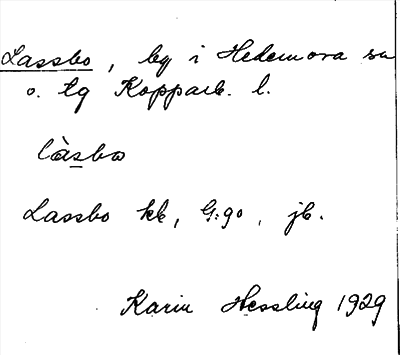 Lassbo, by i Hedemora sn
o. tg Kopparb. l.
làsbo
Lassbo kk, G:90, jb.
Karin Hessling 1929